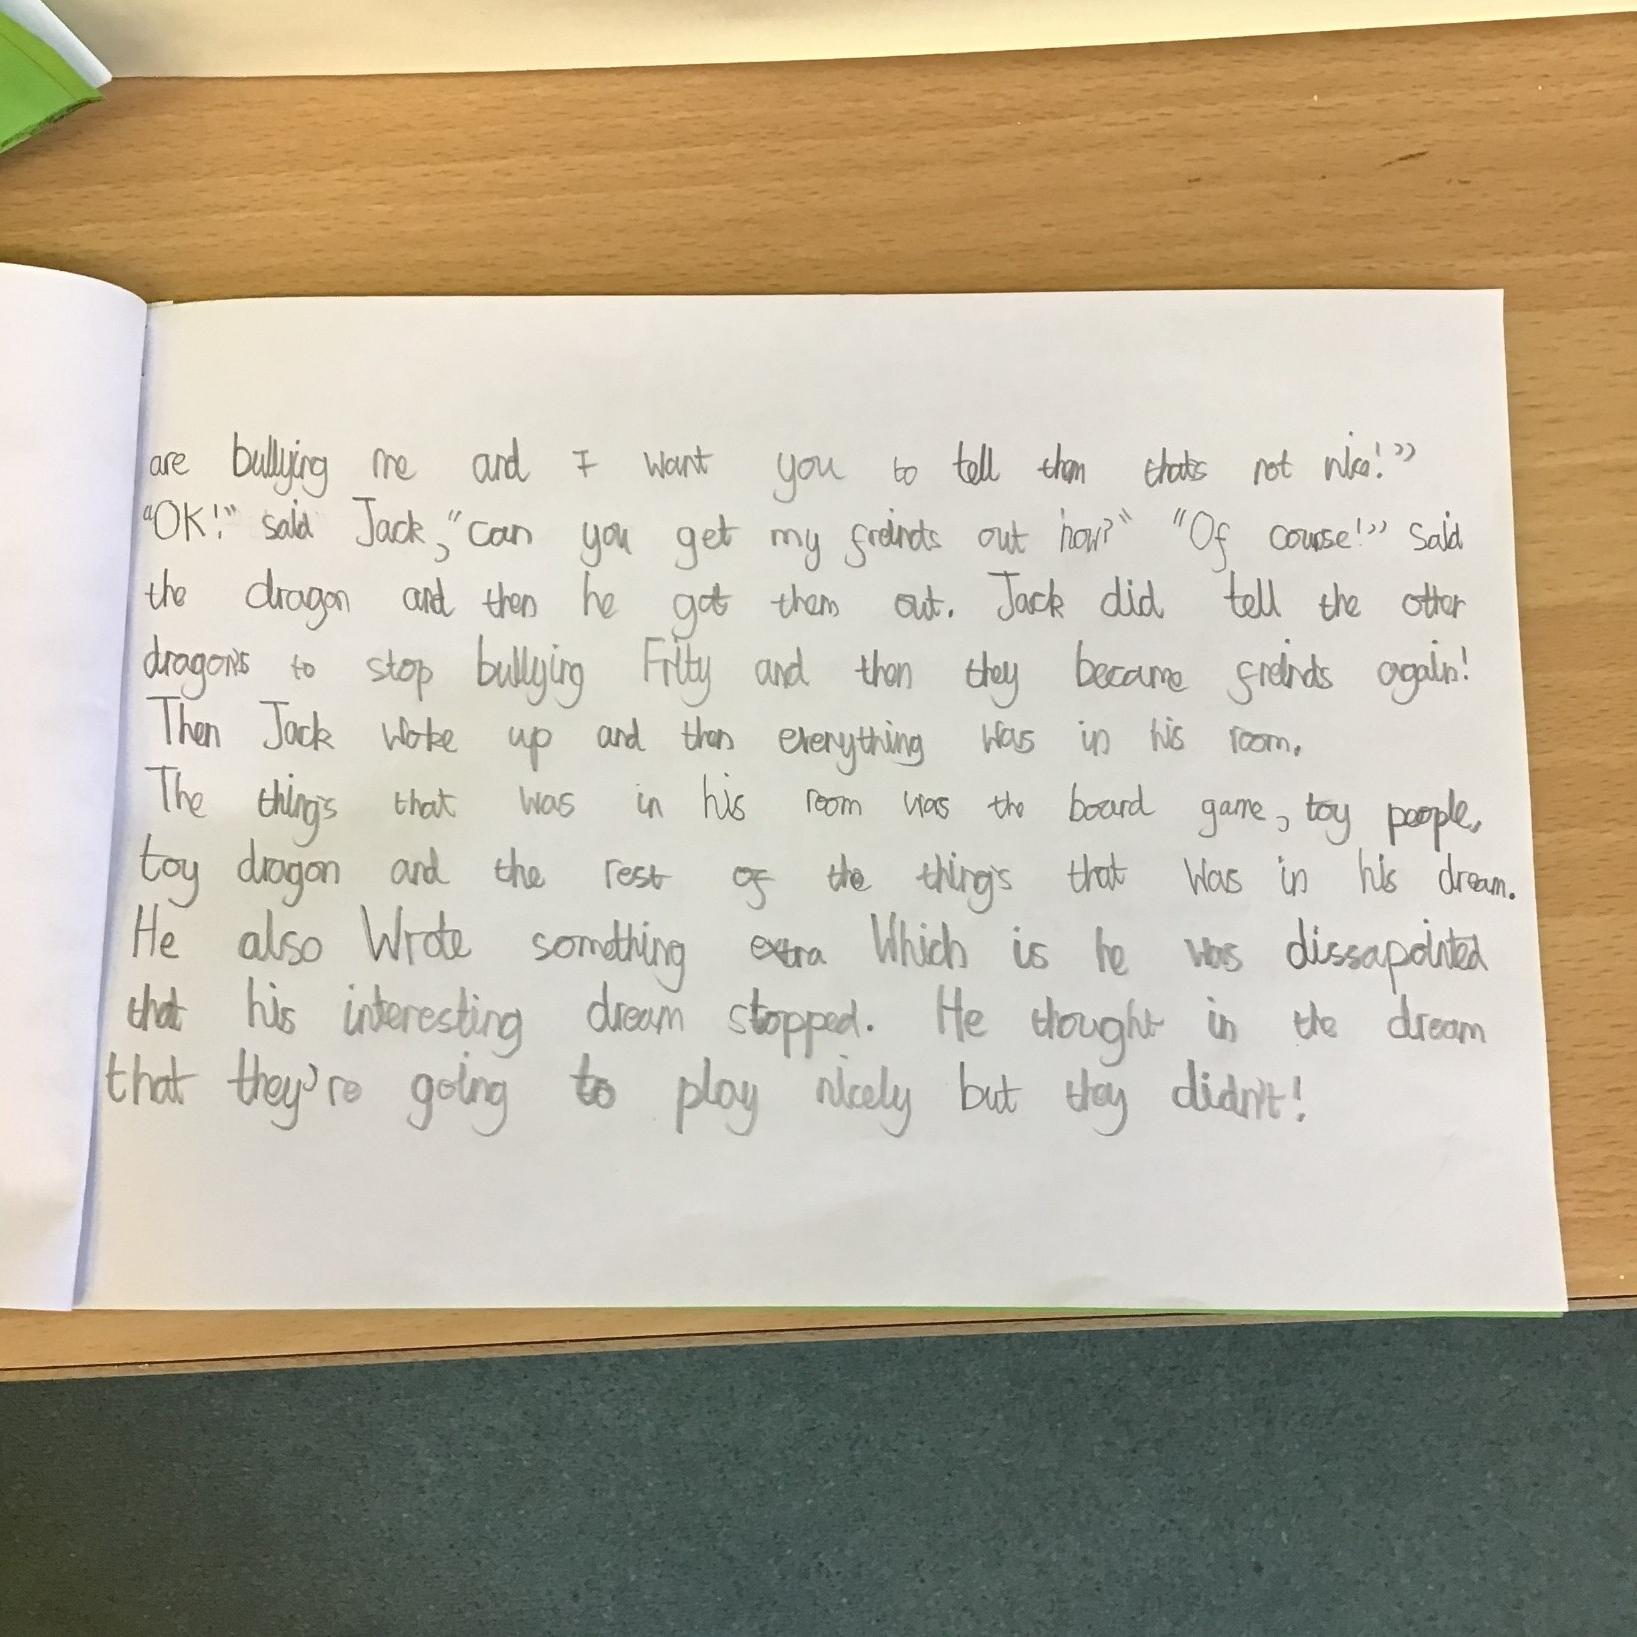 are bullying me and I want you to tell them thats not nice!"
"OK!" said Jack, "can you get my freinds out now?" "Of course!" said
the dragon and then he got them out. Jack did tell the other
dragon's to stop bullying Frity and then they became freinds again!
Then Jack woke up and then everything was in his room.
The thing's that was in his room was the board game, toy people,
toy dragon and the rest of the thing's that was in his dream.
He also Wrote something extra Which is he was dissapointed
that his interesting dream stopped. He thought in the dream
that they're going to play nicely but they didn't!